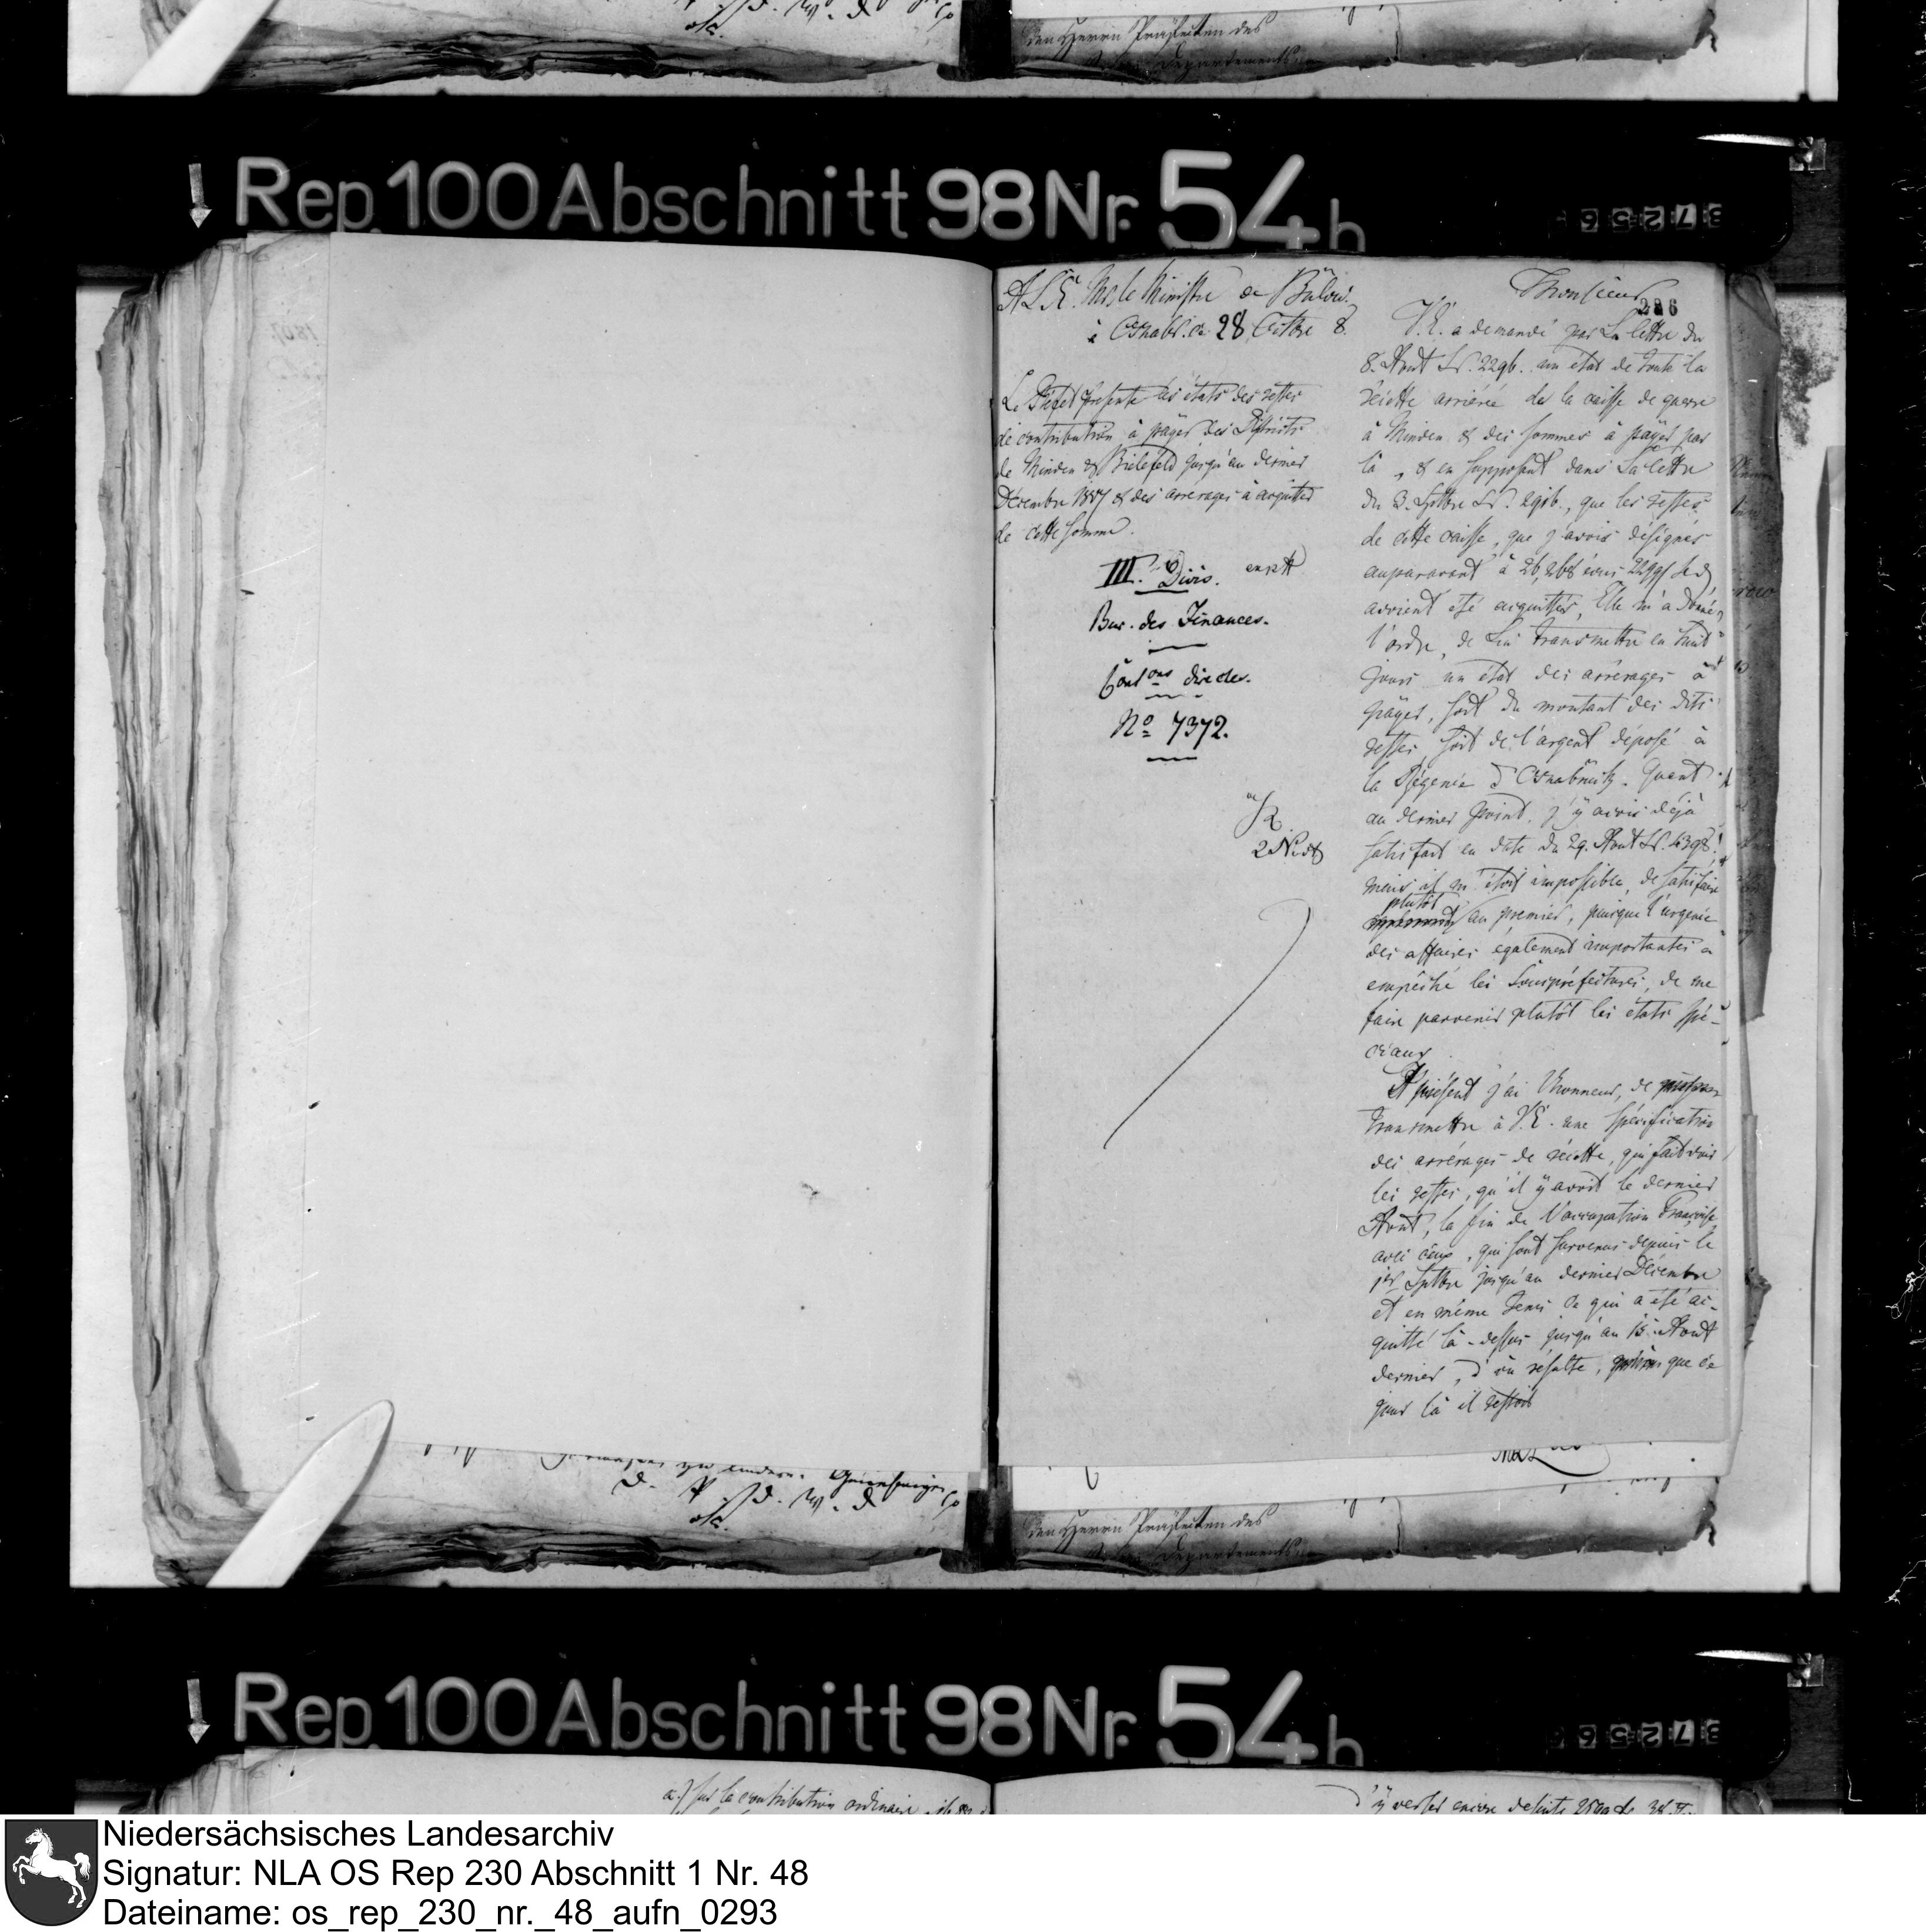 den Herrn Präfecten des
Departements
Rep. 100 Abschnitt 98 Nr. 54 h
37256
A S. E. Mr. le Ministre de Bülow.
à Osnabr. ce 28 Octbre 8.
Le Préfet presente les états des restes
de contribution à payer des Districts
de Minden & Bielefeld jusqu'au dernier
Décembre 1807 & des arrerages à acquitter
de cette somme.
III. Divis.
Bur. des Finances.
Contons directes.
No 7372.
2 Nvbr
Monsieur
286
V. E. a demandé par Sa lettre du
8. Aout Nr. 2296. un état de toute la
recette arriérée de la caisse de guerre
à Minden & des sommes à payer par
là, & en supposant dans Sa lettre
du 3. Septbre Nr. 2916., que les restes
de cette caisse, que j'avois désignés
auparavant à 26,268 écus
avoient été acquittés, Elle m'a donné
l'ordre, de Lui transmettre en huit
jours un état des arrérages à
payer, soit du montant des dits
restes soit de l'argent déposé à
la Régence d'Osnabrück. Quant
au dernier point, j'y avois déjà
satisfait en date du 29. Aout Nr. 4398.
mais il m'étoit impossible, de satisfaire
plutôt
au premier, puisque l'urgence
des affaires également importantes a
empêché les Souspréfectures, de me
faire parvenir plutôt les états spé-
ciaux.
A présent j'ai l'honneur, de
transmettre à V. E. une spécification
des arrérages de recette, qui fait voir
les restes, qu'il y avoit le dernier
Aout, la fin de l'occupation Françoise
avec ceux, qui sont survenus depuis le
1er Septbre jusqu'au dernier Décembre
et en même tems ce qui a été ac-
quitté là-dessus jusqu'au 15. Aout
dernier, d'où résulte, que ce
jour là il restoit
d. P. d. W. D
den Herrn Präfecten des
Departements
Rep. 100 Abschnitt 98 Nr. 54 h
37256
a.) sur la contribution ordinaire
d'y verser encore
Niedersächsisches Landesarchiv
Signatur: NLA OS Rep 230 Abschnitt 1 Nr. 48
Dateiname: os_rep_230_nr._48_aufn_0293